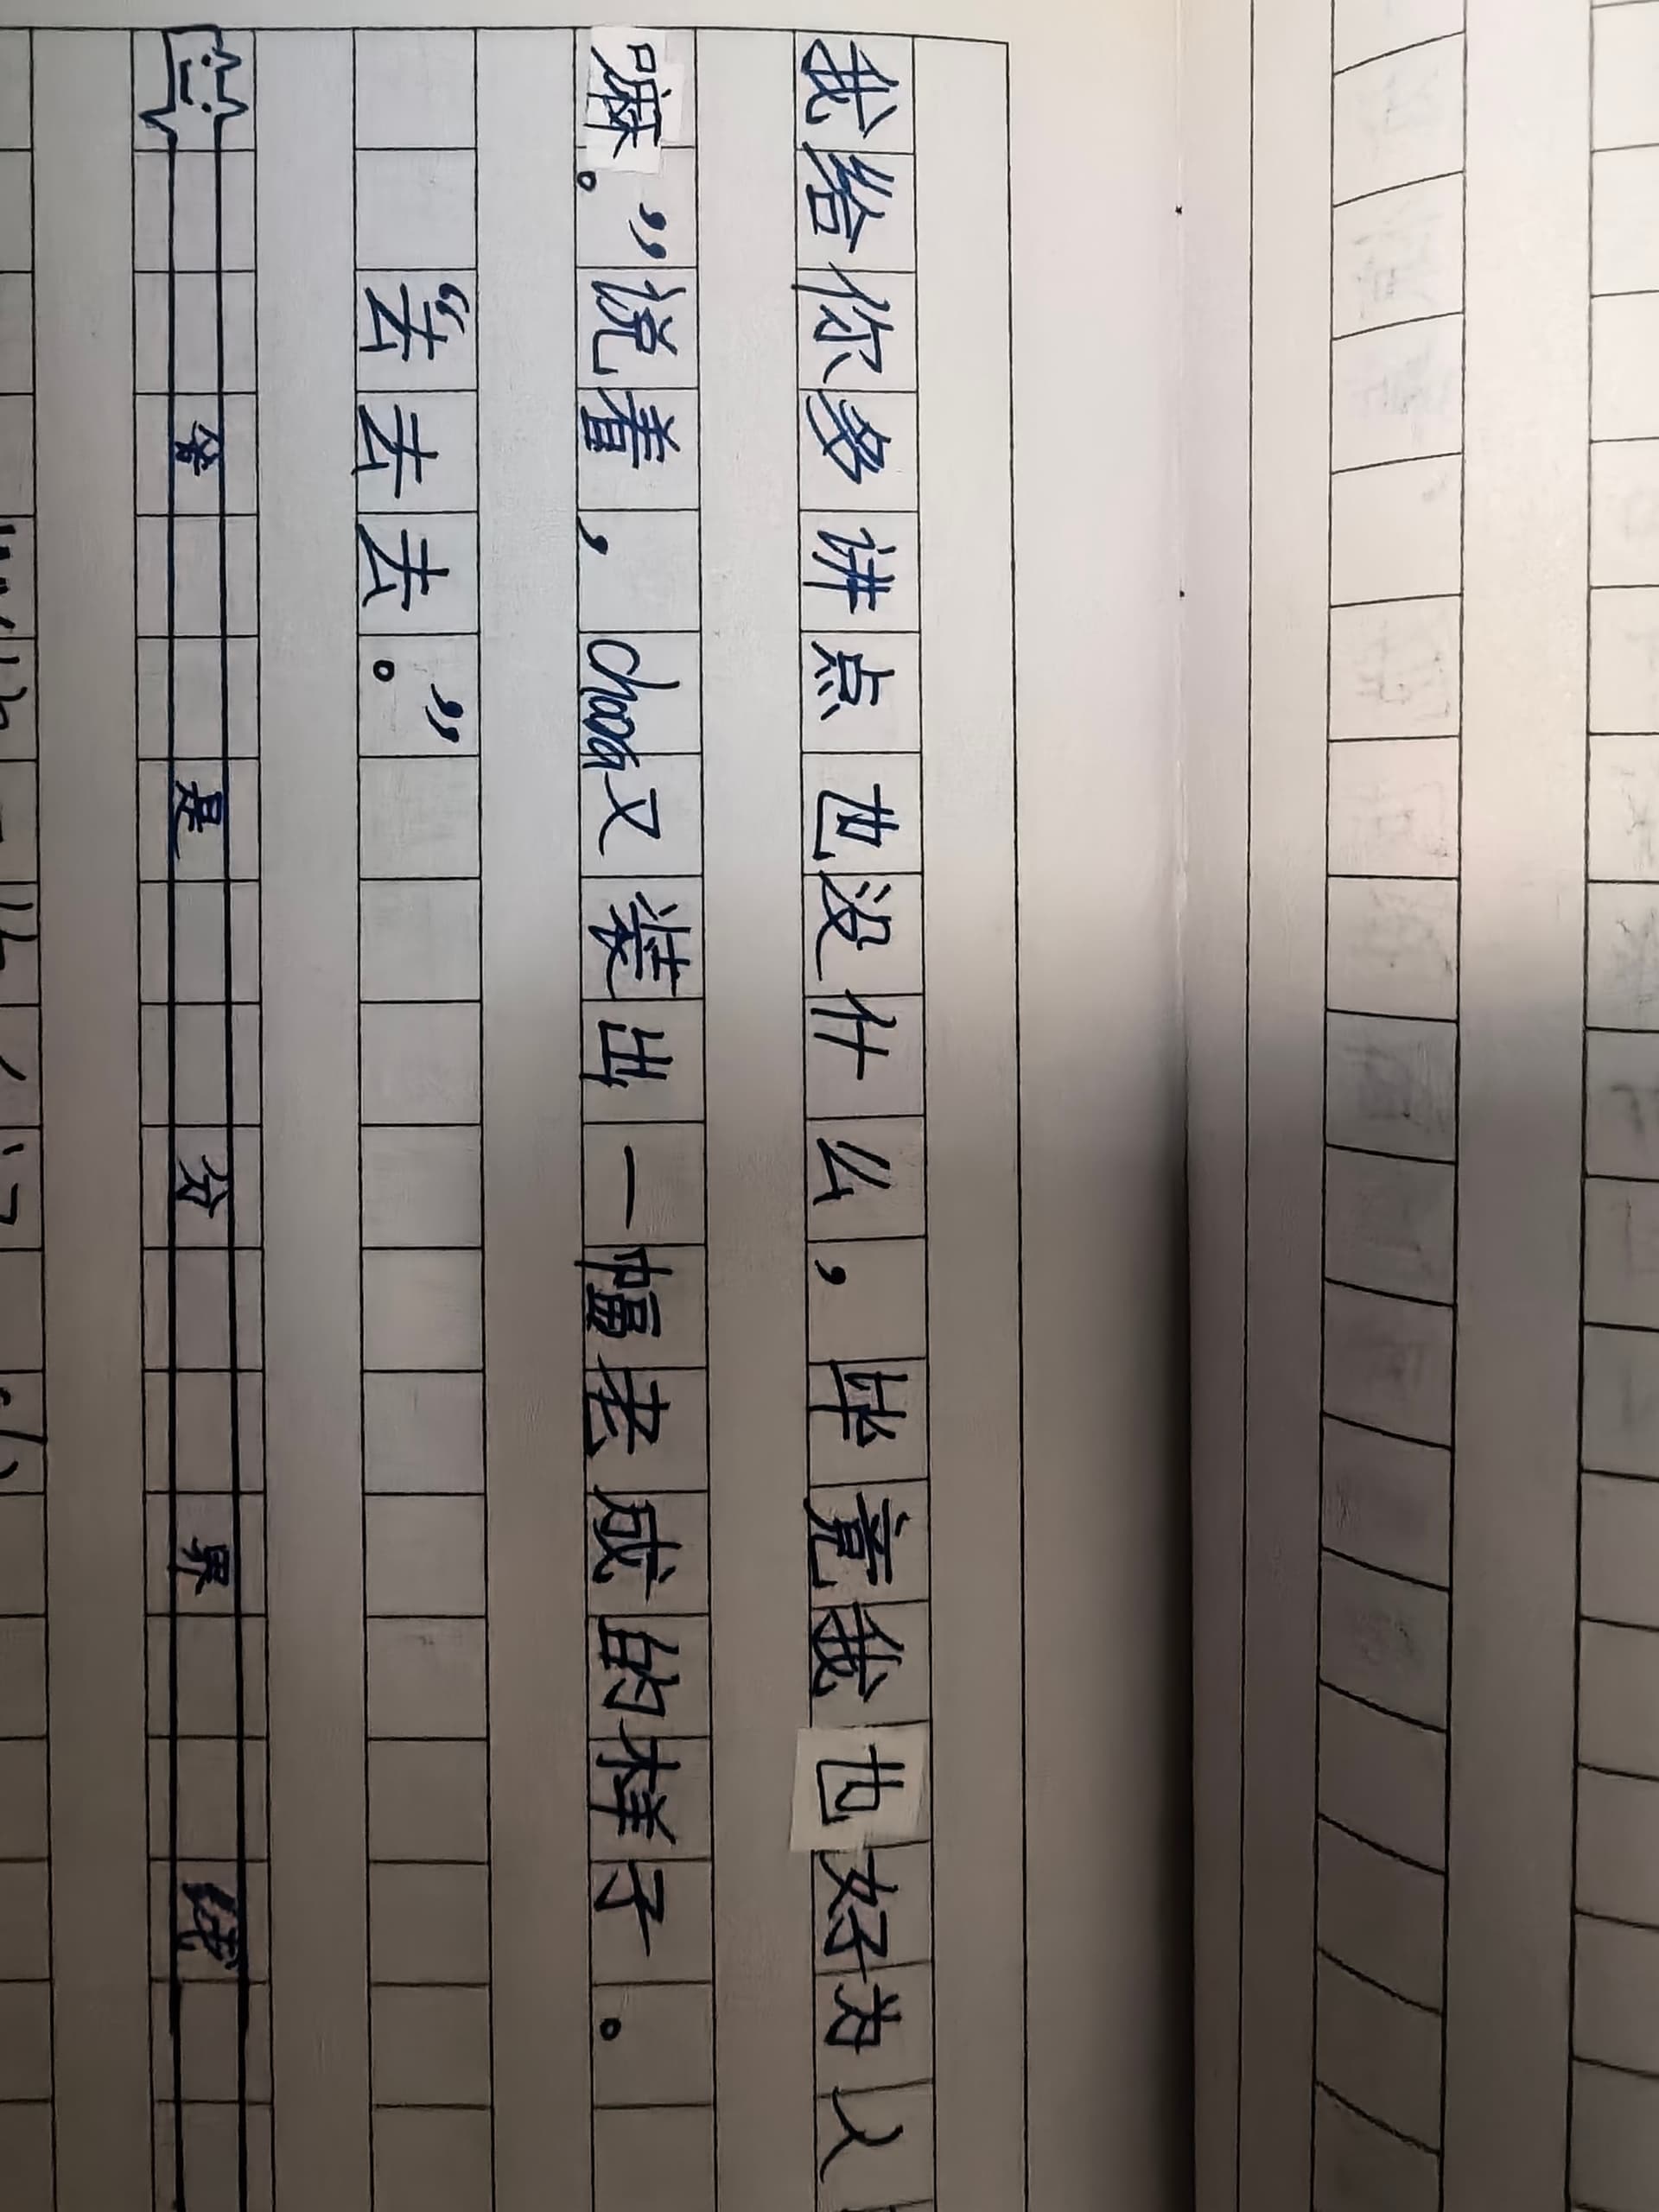 我给你多讲点也没什么，毕竟我也好为人
嘛。”说着，又装出一幅老成的样子。
“去去去。”
是分界线